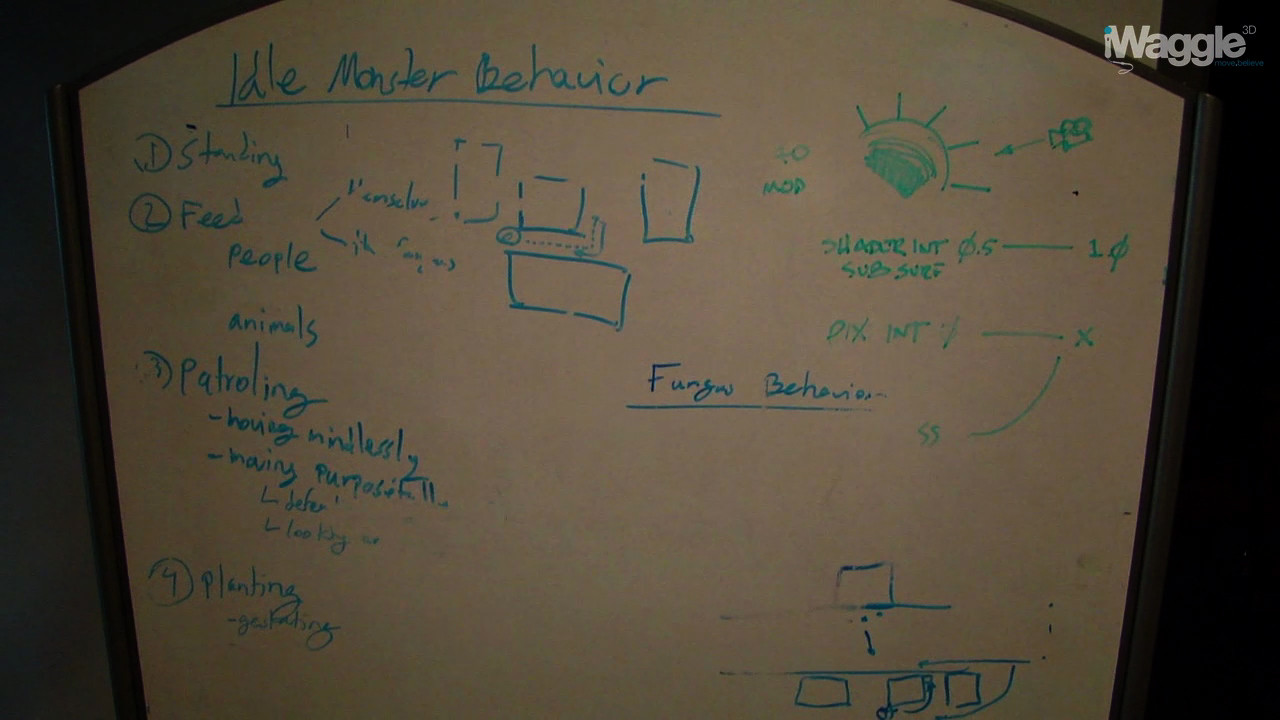 iWaggle 3D
move, believe
Idle Monster Behavior
① Standing
② Feed
people
animals
③ Patroling
- moving mindlessly
- moving
looking
④ Planting
- gestating
MOD
SHADER INT 0.5 — 1.0
SUB SURF
PIX INT — X
SS
Fungus Behavior